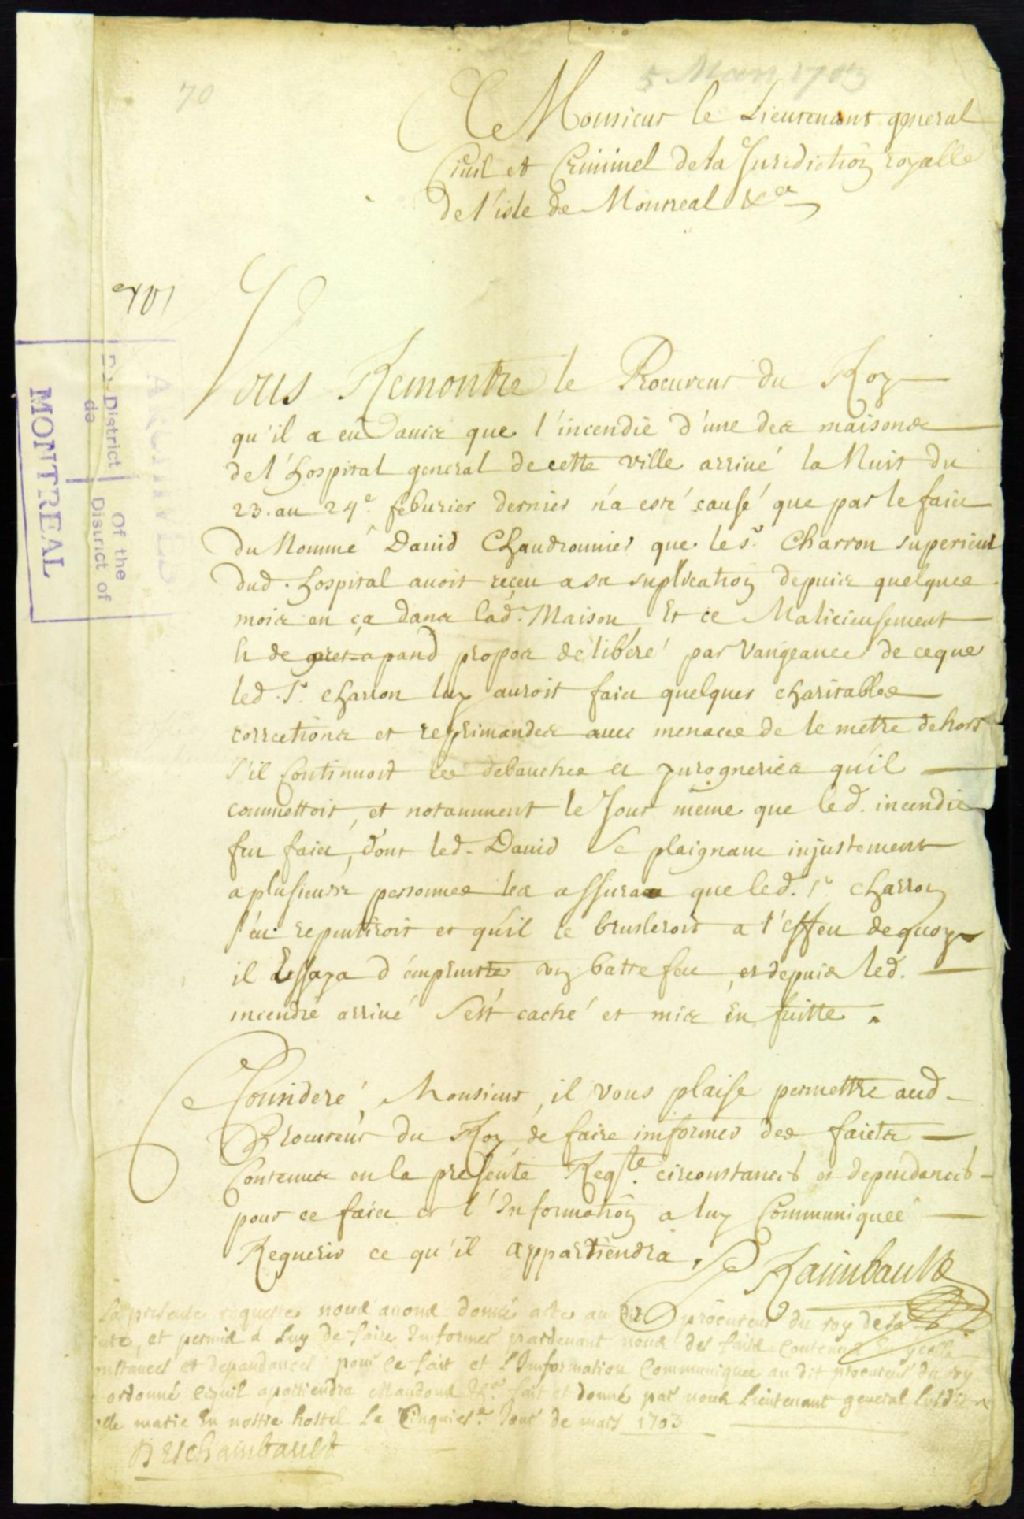 5 Mars 1703
70
A Monsieur le Lieutenant general
Civil et Criminel de la Jurediction royalle
de l'isle de Monreal &ca
701
ARCHIVES
Du District de MONTREAL
Of the District of
Vous Remontre le Procureur du Roy
qu'il a eu d'avis que l'incendie d'une des maisons
de l'hospital general de cette ville arrivé la Nuit du
23. au 24e. feburier dernier n'a esté causé que par le faict
du Nommé David Chaudronnier que le Sr. Charron superieur
dud. hospital avoit receu a sa suplication depuis quelques
mois en ça dans lad. Maison, Et ce Malicieusement
& de pand propos deliberé par vangeance de ce que
led. Sr. charron luy auroit faict quelques charitables
corrections et reprimandes avec menaces de le mettre dehors
s'il Continuoit les debauches et yurogneries qu'il
commettoit, et notamment le Jour même que led. incendie
fut faict, dont led. David se plaignant injustement
a plusieurs personnes les assura que led. Sr charron
s'en repentiroit et qu'il le brusleroit a l'effeu de quoy
il Essaya d'emprunter un batte feu, et depuis led.
incendie arrivé s'est caché et mis en fuitte.
Consideré Monsieur, il vous plaise permettre aud.
Procureur du Roy de faire informer des faicts
Contenus en la presente Reqte. circonstances et dependances
pour ce faict et l'Information a luy Communiquée
Requerir ce qu'il appartiendra. Raimbault
La presente requeste nous avons donné acte au procureur du roy de sa
et permis a Luy de faire Informer pardevant nous des faits Contenus
et depandances pour ce fait et L'Information Communiquée au dit procureur du roy
ordonné cequil apartiendra Mandons &ca fait et donné par nous Lieutenant general susdit
en nostre hostel Le Cinquiese. Jour de mars 1703
Deschambault